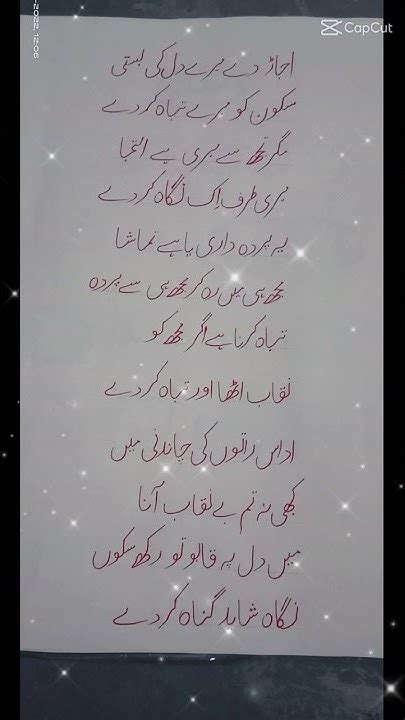 CapCut
-2022 12:06
اجاڑ دے میرے دل کی بستی
سکون کو میرے تباہ کر دے
مگر تجھ سے میری ہے التجا
میری طرف اِک نگاہ کر دے
یہ پردہ داری ہے یا تماشا
مجھ ہی میں رہ کر مجھ ہی سے پردہ
تباہ کرنا ہے اگر مجھ کو
نقاب اٹھا اور تباہ کر دے
اداس راتوں کی چاندنی میں
کبھی نہ تم بے نقاب آنا
میں دل پہ قابو تو رکھ سکوں
نگاہ شاید گناہ کر دے